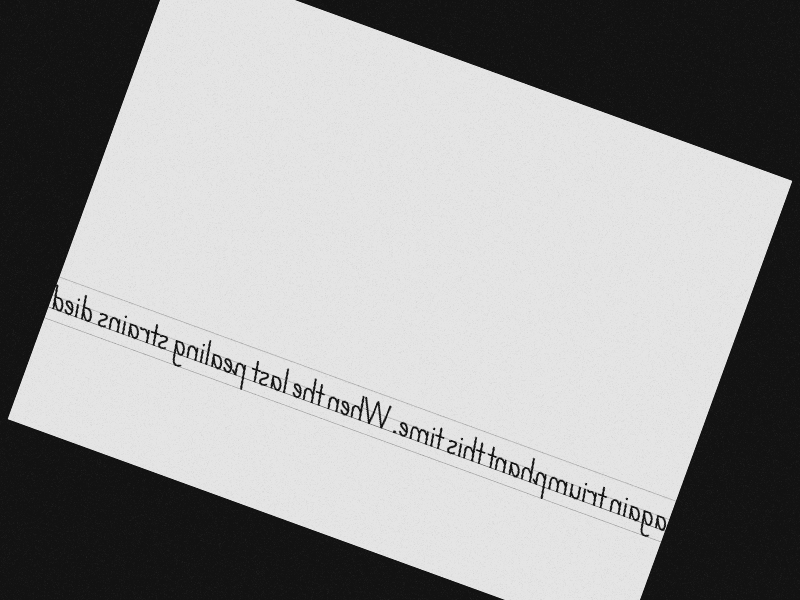 again triumphant this time. When the last pealing strains died